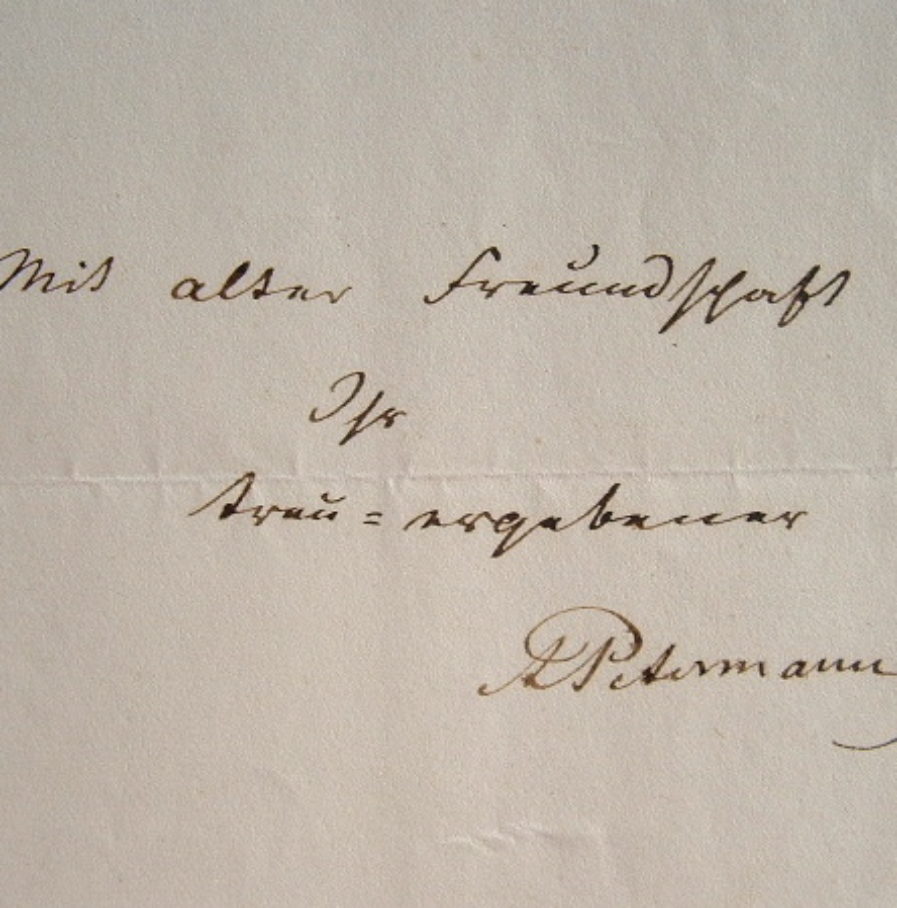 Mit alter Freundschaft
Ihr
treu=ergebener
A Petermann